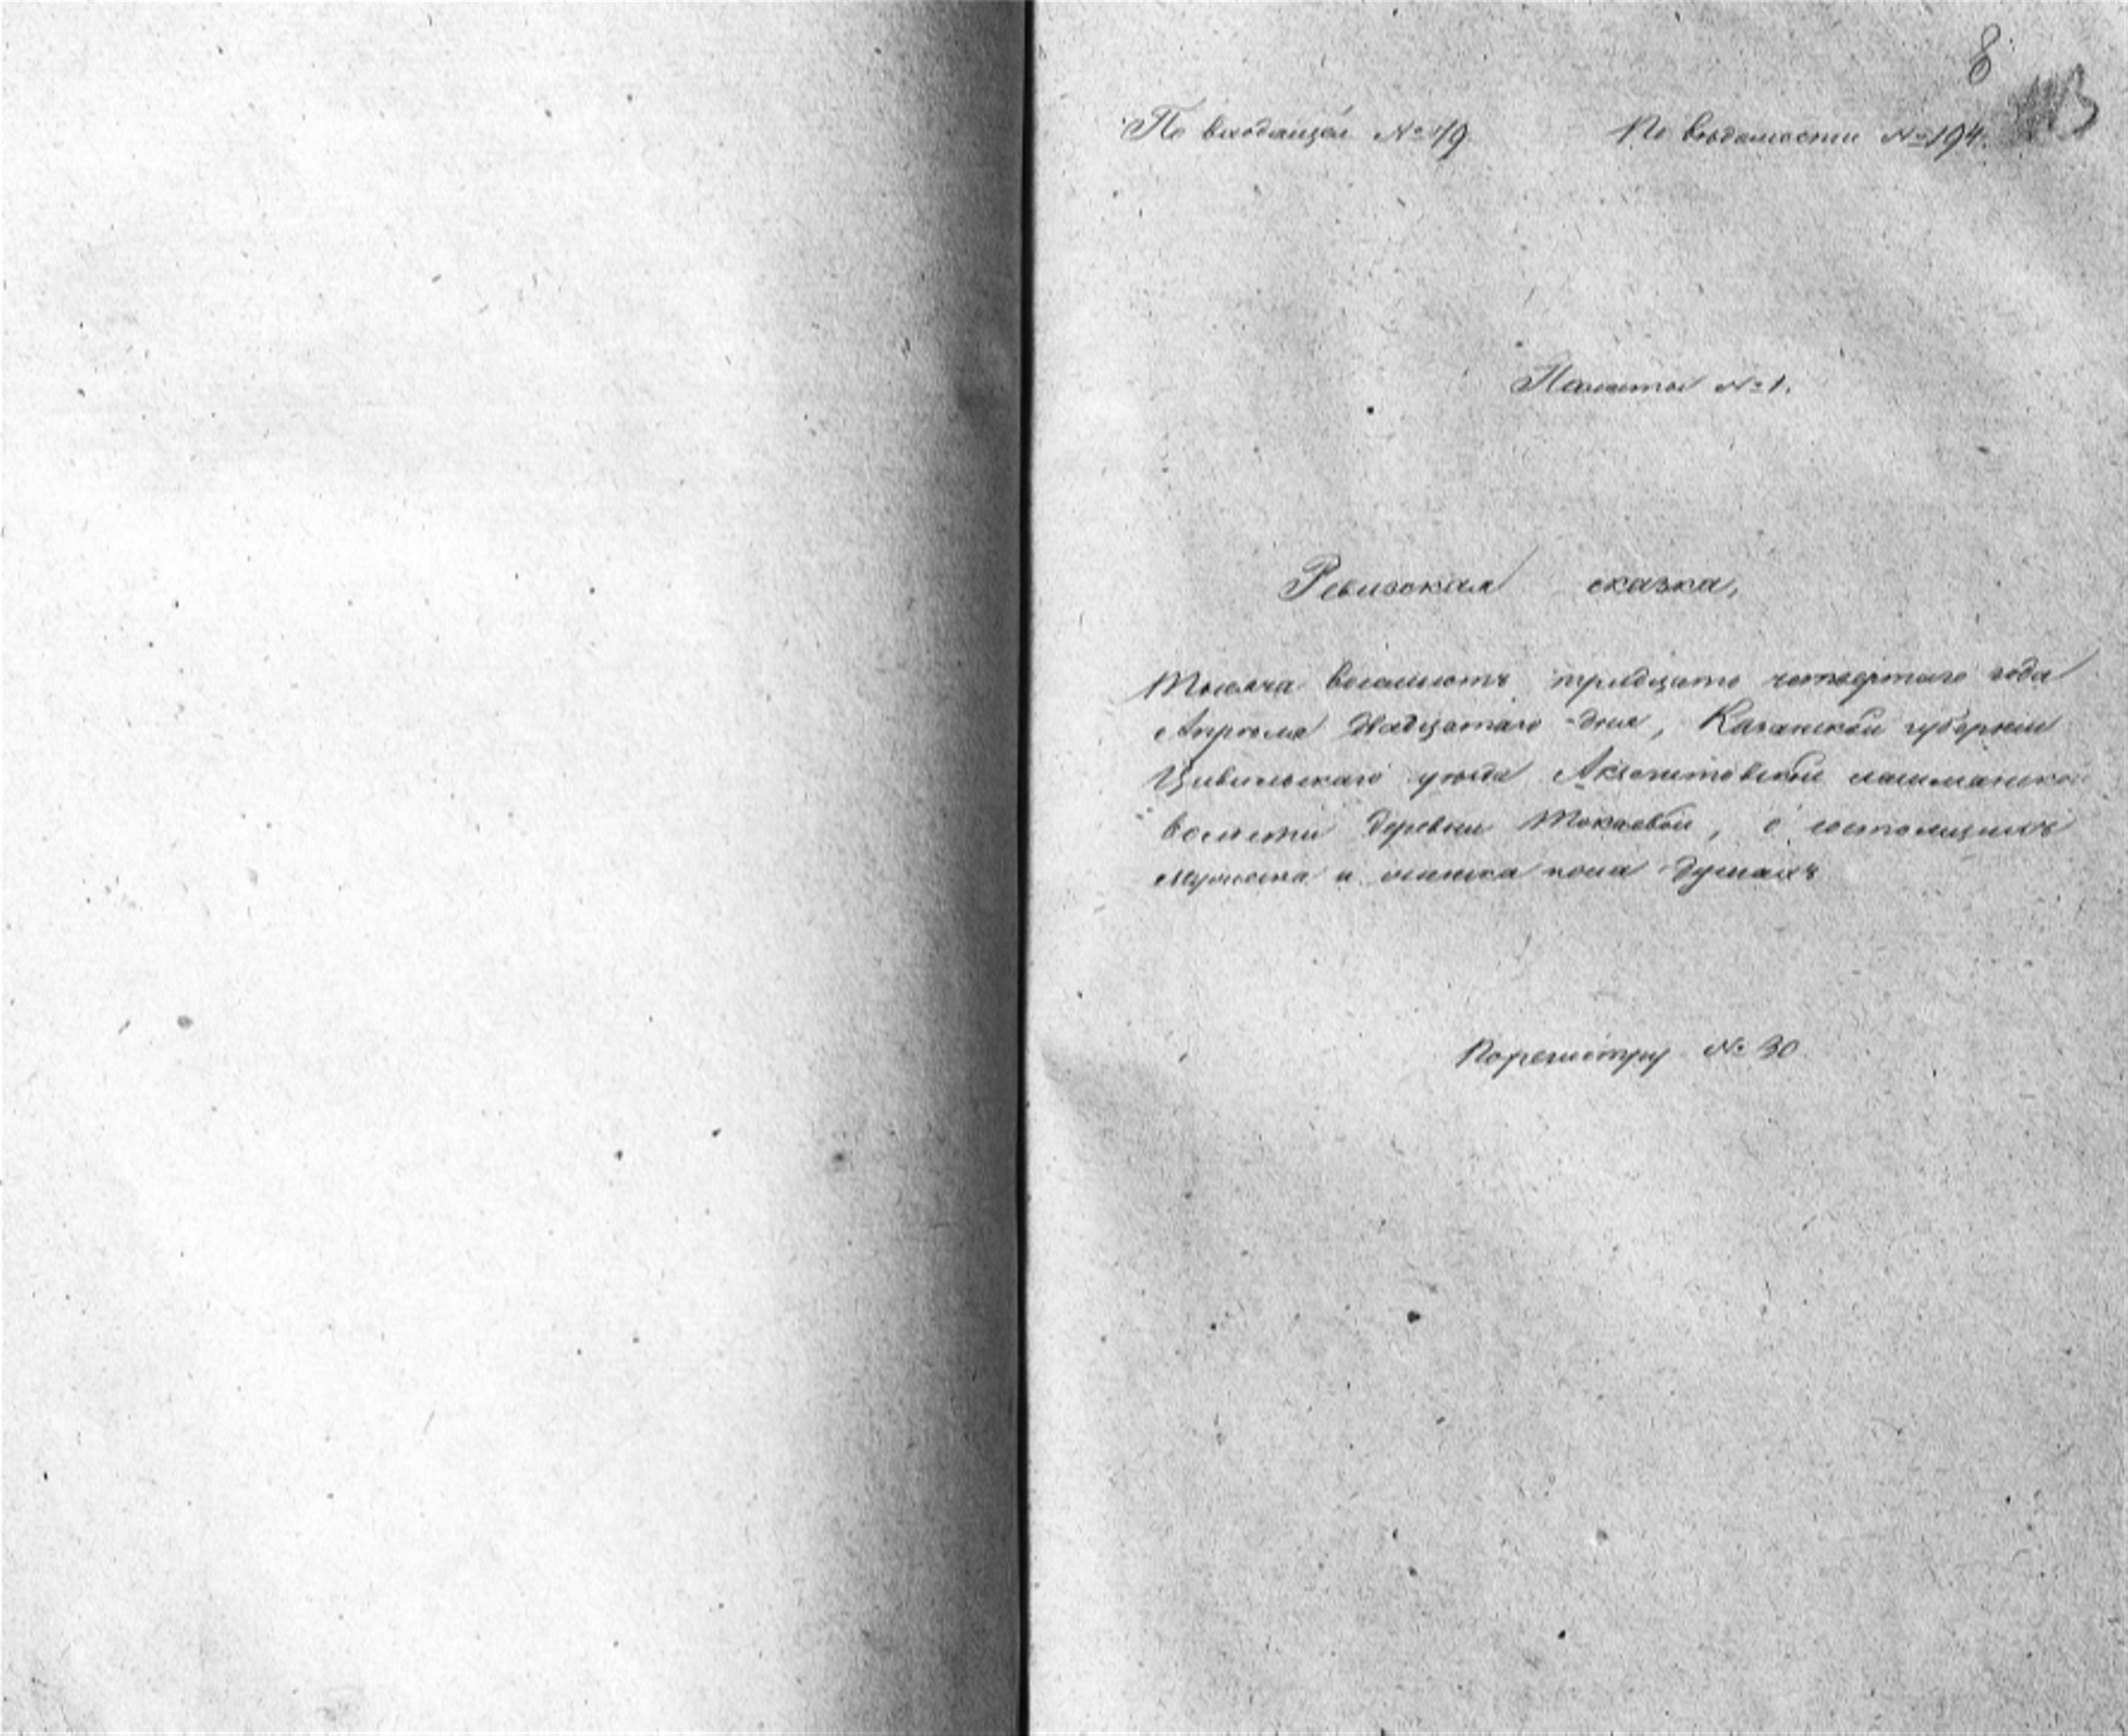 8
По входящей № 19 По вѣдомости № 194.
Палаты № 1.
Ревизская сказка,
Тысяча восемьсотъ тридцать четвертаго года
Апрѣля двадцатаго дня, Казанской губернии
Цивильскаго уѣзда Аксаринской лашманской
волости деревни Токаевой, о состоящихъ
мужеска и женска пола душахъ
По регистру № 30